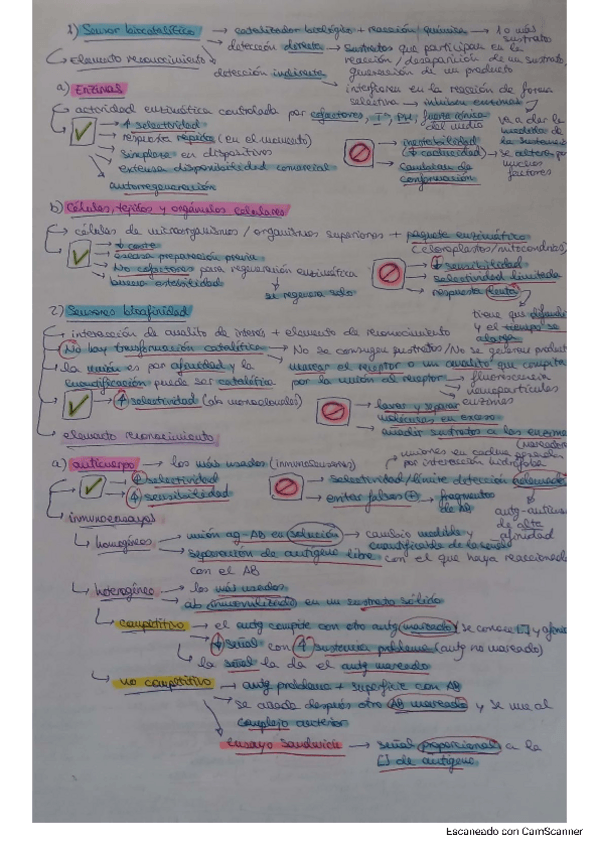 1) Sensor biocatalítico → catalizador biológico + reacción/química → 1 o más sustrato
→ detección directa → sustratos que participan en la
↳ elemento reconocimiento reacción/desaparición de un sustrato,
generación de un producto
detección indirecta → interfieren en la reacción de forma
selectiva → inhiben enzimas
a) Enzimas
↳ actividad enzimática controlada por cofactores, Tª, pH, fuerza iónica del medio
→ ↑ selectividad
→ respuesta rápida (en el momento)
→ simpleza en dispositivos
→ extensa disponibilidad comercial
autorregeneración
→ inestabilidad (↓ caducidad) → se alteran por muchos factores
→ cambian de conformación
va a dar la medida de la sustancia
b) Células, tejidos y orgánulos celulares
↳ células de microorganismos / organismos superiores + paquete enzimático
(cloroplastos/mitocondrias)
→ ↓ coste
→ escasa preparación previa
→ No cofactores para regeneración enzimática
→ buena estabilidad
se regenera solo
→ ↓ sensibilidad
→ selectividad limitada
→ respuesta lenta
tiene que difundir y el tiempo se alarga
2) Sensores bioafinidad
→ interacción de analito de interés + elemento de reconocimiento
→ No hay transformación catalítica → No se consumen sustratos/No se generan product
→ la unión es por afinidad y la → marcar el receptor o un analito que compita
cuantificación puede ser catalítica por la unión al receptor → fluorescencia
→ nanopartículas
→ enzimas
→ ↑ selectividad (ab monoclonales)
→ lavar y separar
moléculas en exceso
→ añadir sustratos a las enzimas
↳ elemento reconocimiento
(marcadores)
a) anticuerpo → los más usados (inmunosensores)
uniones en cadena generadas por interacción hidrófoba
→ ↑ selectividad
→ ↑ sensibilidad
→ selectividad/límite detección
→ evitar falsos + → fragmentos de AB
antg-antic
de alta afinidad
↳ inmunoensayos
↳ homogéneos → unión ag-AB en solución → cambio medible y
cuantificable de la señal
→ separación de antígeno libre con el que haya reaccionado
con el AB
↳ heterogéneo → los más usados
→ ab inmovilizado en un sustrato sólido
↳ competitivo → el antg compite con otro antg marcado (se conoce [ ] y afini
→ ↓ señal con ↑ sustancia problema (antg no marcado)
↳ la señal la da el antg marcado
↳ no competitivo → antg problema + superficie con AB
→ se añade después otro AB marcado y se une al
complejo anterior
ensayo sandwich → señal proporcional a la
[ ] de antígeno
Escaneado con CamScanner